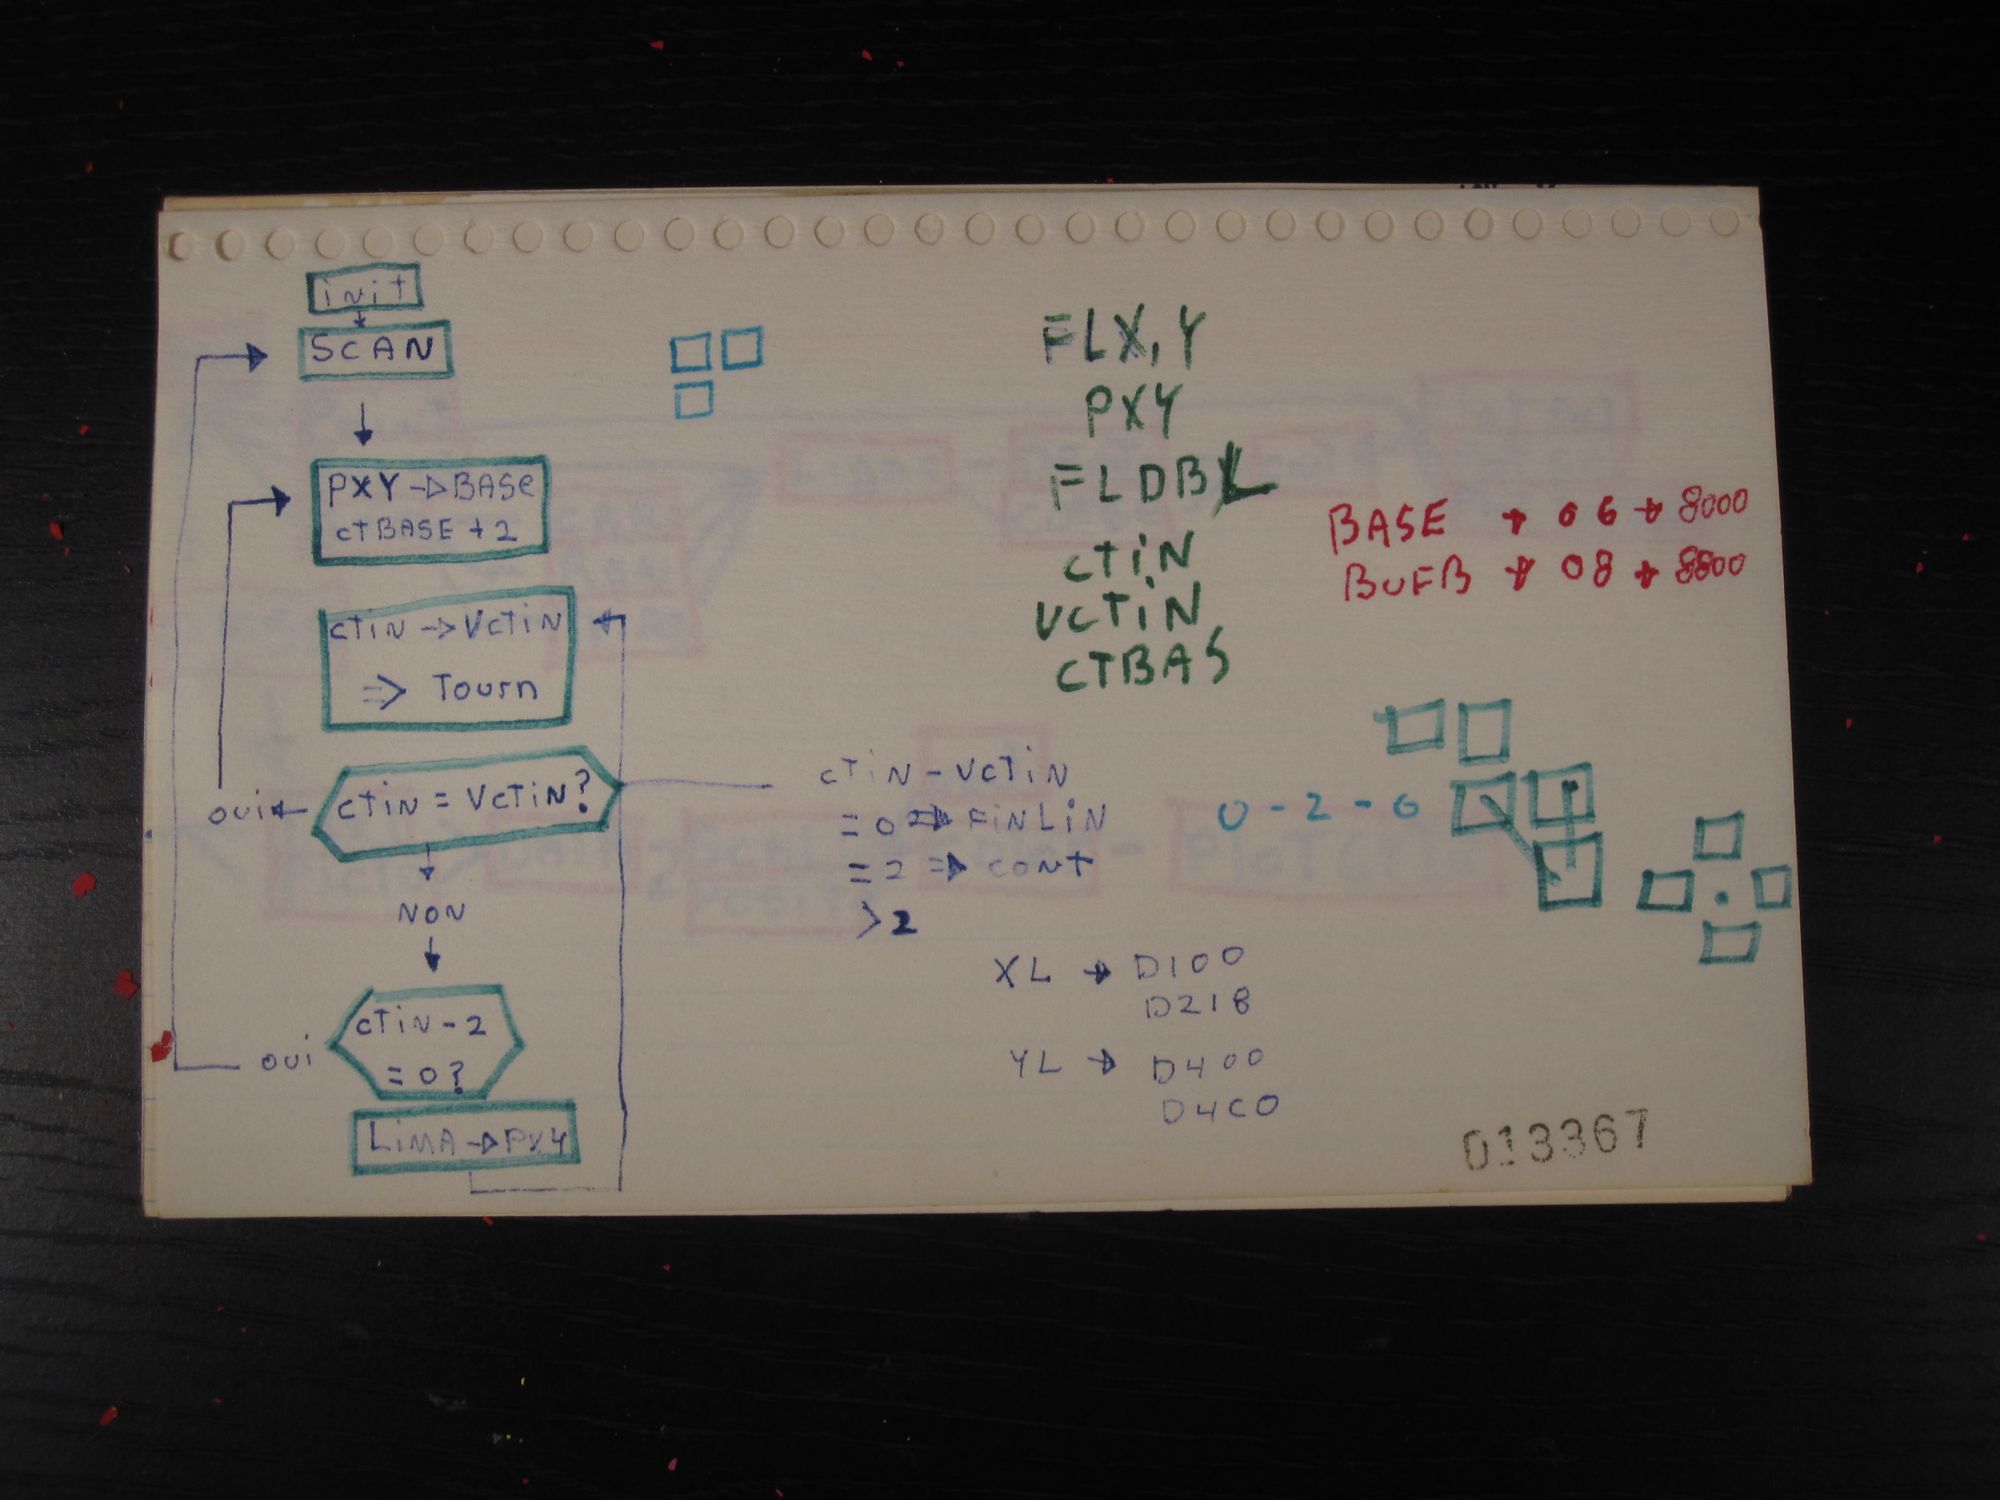 init
SCAN
PXY -> BASE
ctBASE + 2
CTiN -> VCTiN
=> Tourn
CTiN = VCTiN?
oui
NON
CTiN - 2
= 0?
oui
LiMA -> PXY
FLX,Y
PXY
FLDBL
CTiN
VCTiN
CTBAS
BASE → 06 → 8000
BUFB → 08 → 8800
CTiN - VCTiN
= 0 => FiNLiN
= 2 => CONT
> 2
0 - 2 - 0
XL → D100
D218
YL → D400
D4C0
013367